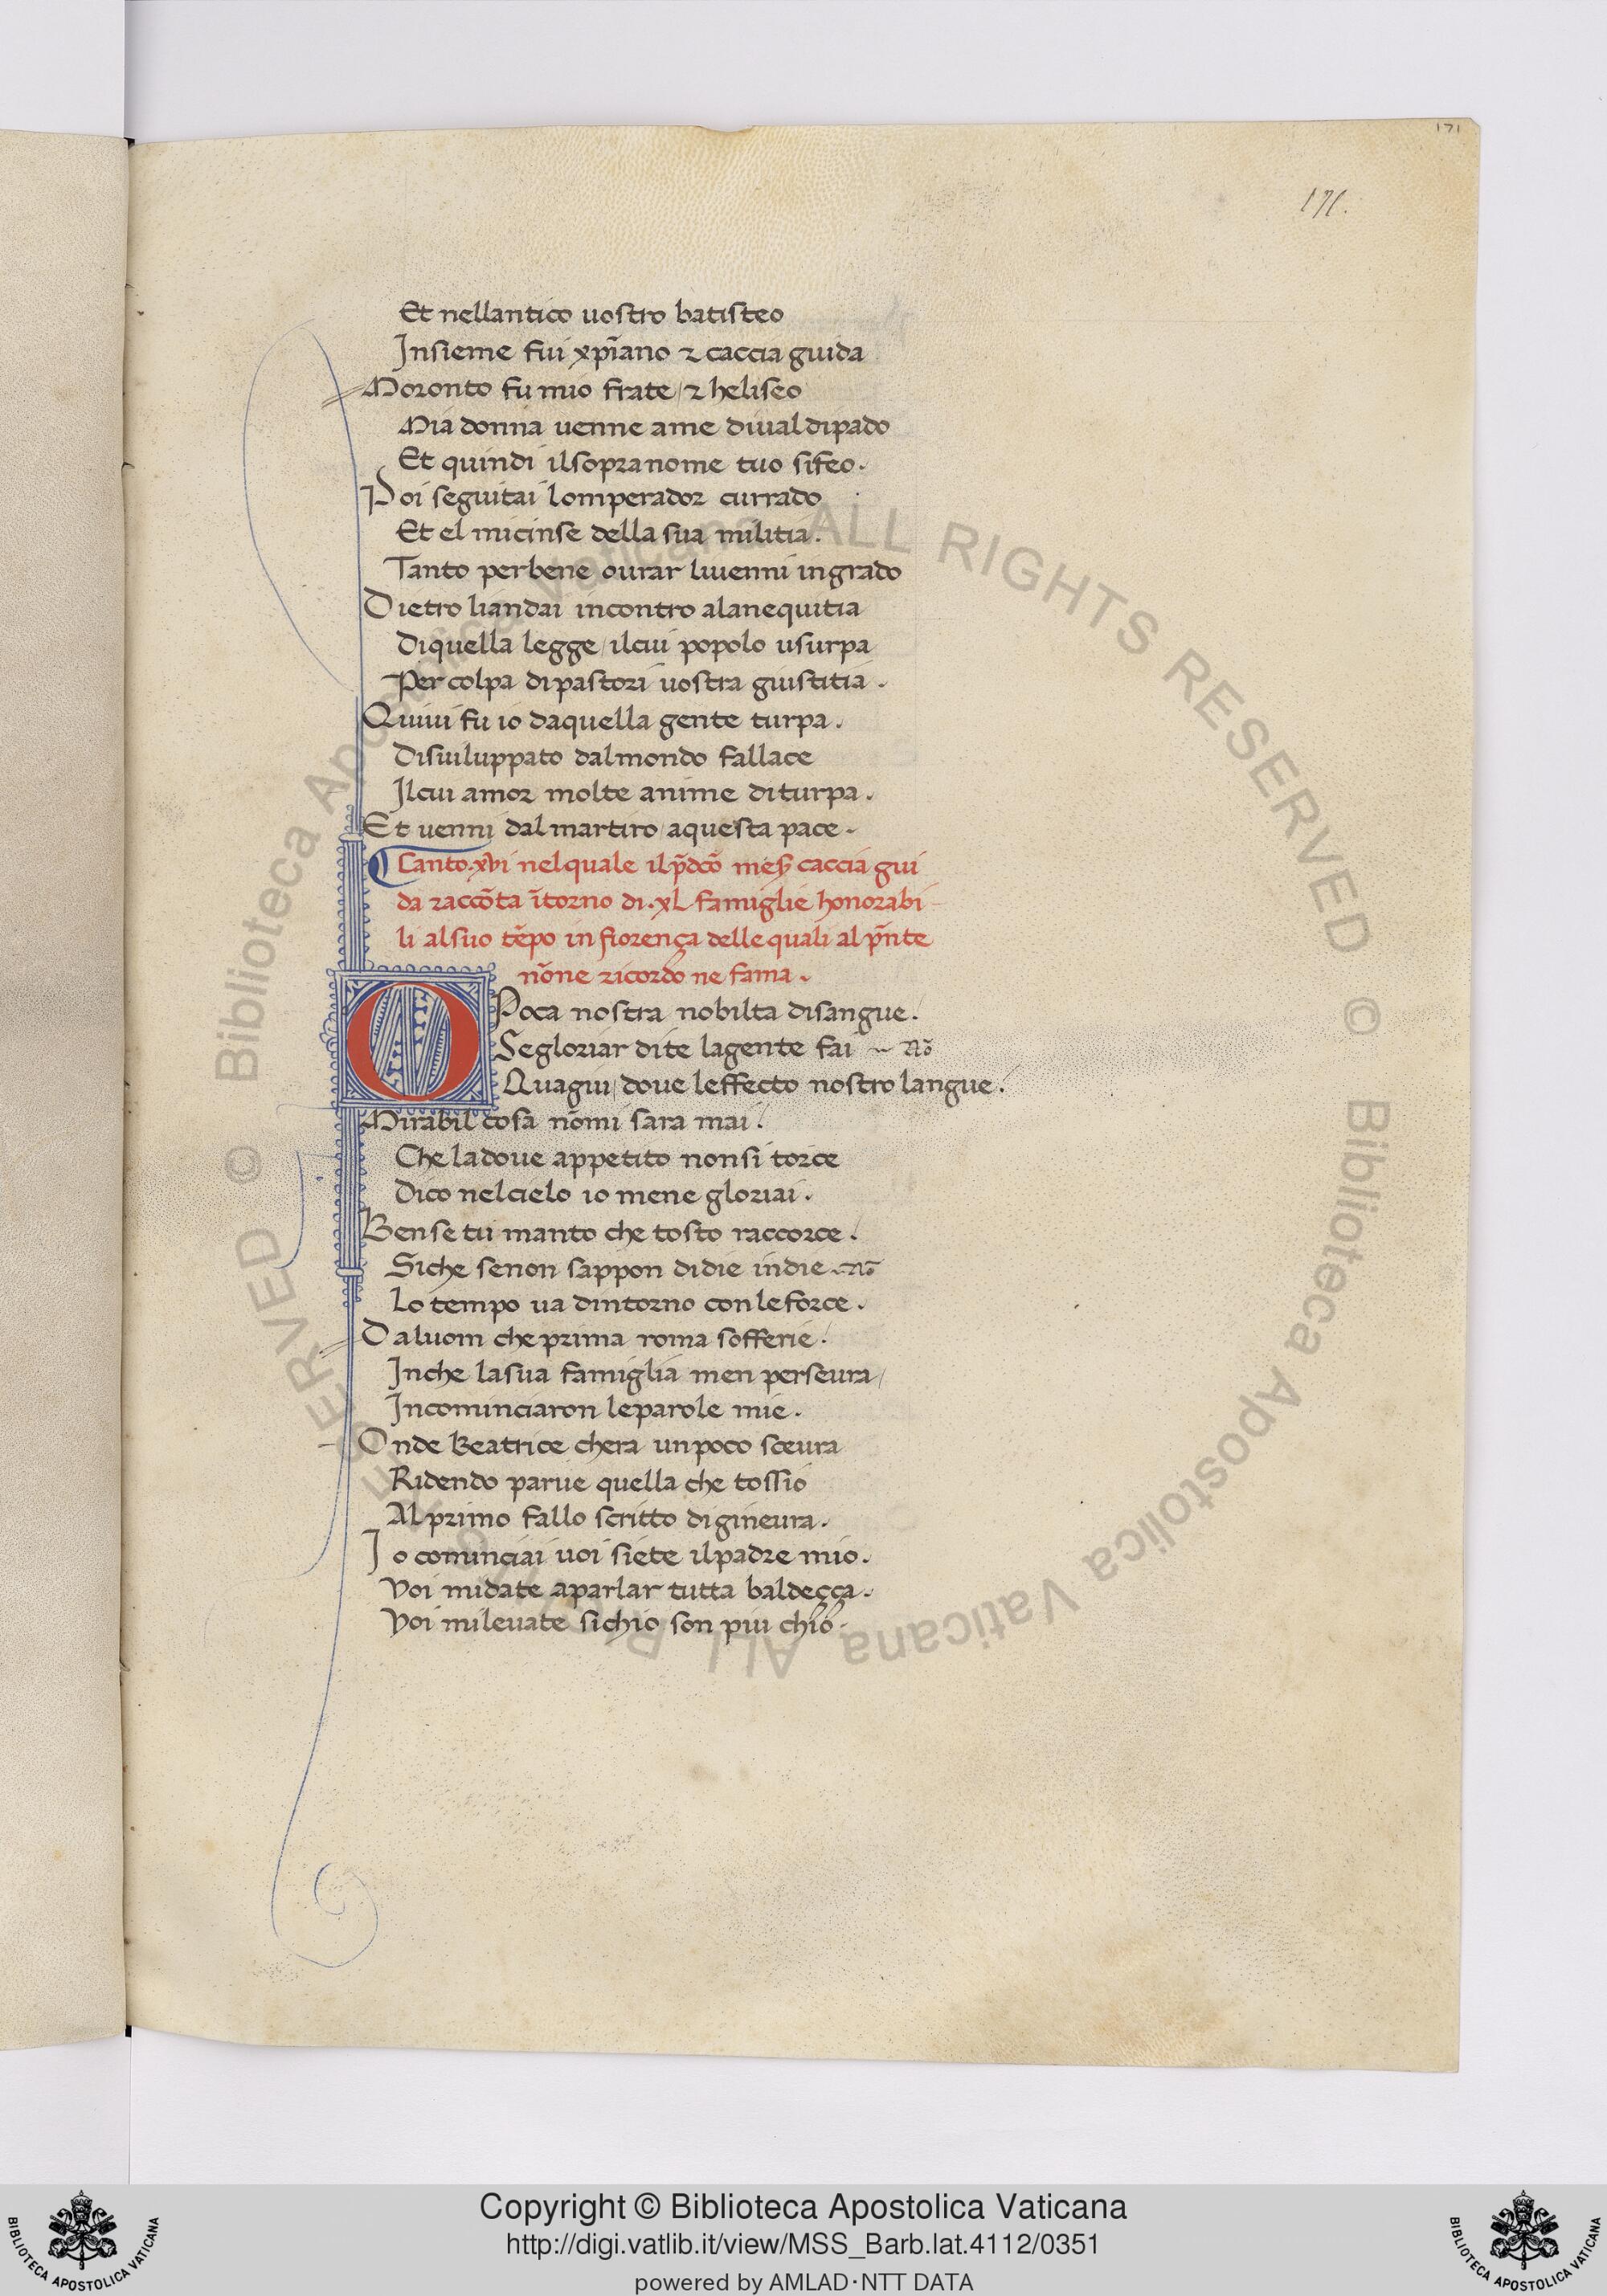 171
171.
Et nellantico uostro batisteo
Insieme fui xp̄iano ⁊ caccia guida
Moronto fu mio frate / ⁊ heliseo
Mia donna uenne ame diual dipado
Et quindi ilsopranome tuo sifeo.
Poi seguitai lomperador currado
Et el micinse della sua militia.
Tanto perbene ourar liuenni ingrado
Dietro liandai incontro alanequitia
Diquella legge / ilcui popolo usurpa
Per colpa dipastori uostra giustitia.
Quiui fu io daquella gente turpa.
Disuiluppato dalmondo fallace
Ilcui amor molte anime diturpa.
Et uenni dal martiro / aquesta pace.
Canto.xvi nelquale il p̄dc̄o mes̄ caccia gui
da raccōta ītorno di.xL famiglie honorabi
li alsuo tēpo in fiorença delle quali al p̄nte
nōne ricordo ne fama.
O Poca nostra nobilta disangue.
Segloriar dite lagente fai
Quagiu / doue leffecto nostro langue.
Mirabil cosa nōmi sara mai.
Che ladoue appetito nonsi torce
Dico nelcielo io mene gloriai.
Bense tu manto che tosto raccorce.
Siche senon sappon didie indie
Lo tempo ua dintorno conleforce.
Daluom che prima roma sofferie.
Inche lasua famiglia men perseura /
Incominciaron leparole mie.
Onde Beatrice chera unpoco sceura
Ridendo parue quella che tossio
Alprimo fallo scritto digineura.
Io cominciai uoi siete ilpadre mio.
Voi midate aparlar tutta baldeçça.
Voi mileuate sichio son piu chio.
© Biblioteca Apostolica Vaticana ALL RIGHTS RESERVED
© Biblioteca Apostolica Vaticana ALL RIGHTS RESERVED
BIBLIOTECA APOSTOLICA VATICANA
Copyright © Biblioteca Apostolica Vaticana
http://digi.vatlib.it/view/MSS_Barb.lat.4112/0351
powered by AMLAD·NTT DATA
BIBLIOTECA APOSTOLICA VATICANA